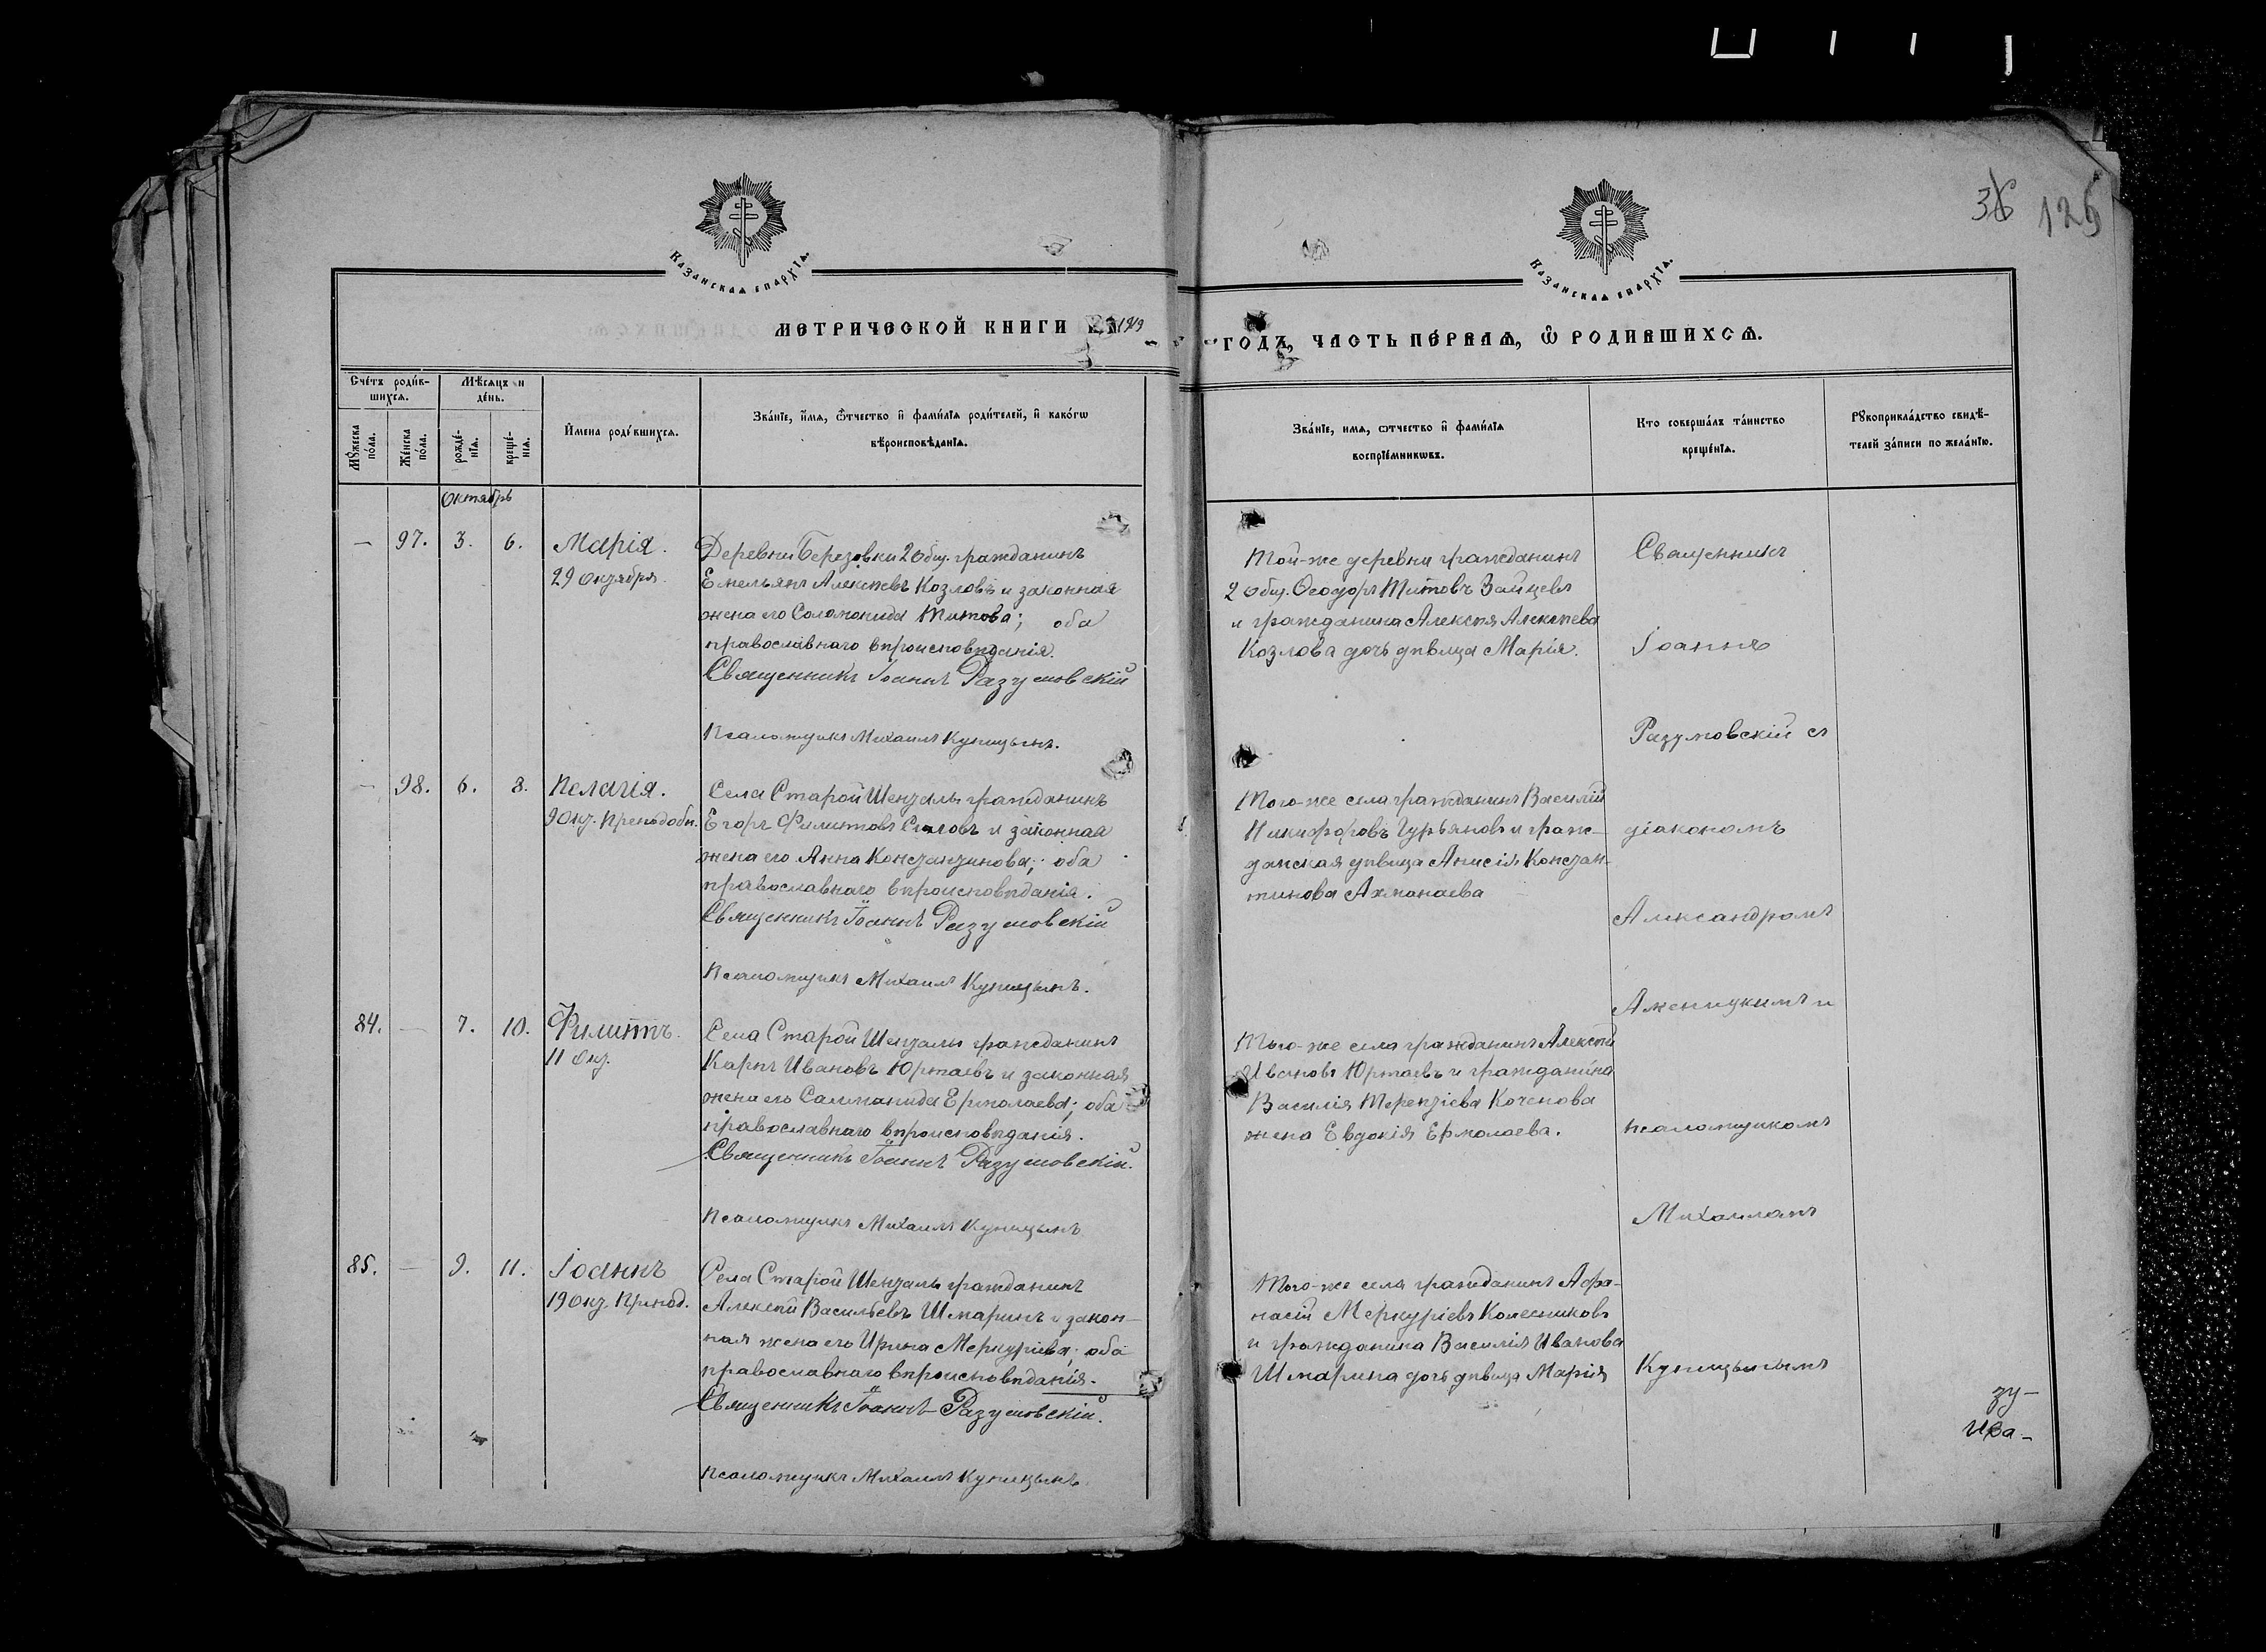 36 125
КАЗАНСКАѦ ЕПАРХІѦ.
КАЗАНСКАѦ ЕПАРХІѦ.
МЕТРИЧЕСКОЙ КНИГИ НА 1919
ГОДЪ, ЧАСТЬ ПЕ́РВАѦ, Ѽ РОДИВШИХСѦ.
Сче́тъ роди́в-
шихсѧ.
Мѣ́сѧцъ и
де́нь.
Мꙋ́жеска
по́ла.
Же́нска
по́ла.
рожде́-
нїѧ.
креще́-
нїѧ.
И҆мена роди́вшихсѧ.
Зва́нїе, и҆́мѧ, ѻ҆́тчество и҆ фами́лїѧ роди́телей, и҆ како́гѡ
вѣроисповѣ́данїѧ.
Зва́нїе, имѧ, ѻтчество и҆ фами́лїѧ
воспрїе́мникѡвъ.
Кто соверша́лъ та́инство
креще́нїѧ.
Рꙋкоприкла́дство свидѣ́-
телей за́писи по жела́нїю.
Октябрь
— 97. 3. 6. Марія.
29 октября.
Деревни Березовки 2 общ. гражданинъ
Емельянъ Алексѣевъ Козловъ и законная
жена его Соломонида Титова; оба
православнаго вѣроисповѣданія.
Священникъ Іоаннъ Разумовскій
Псаломщикъ Михаилъ Куницынъ.
Той-же деревни гражданинъ
2 общ. Ѳеодоръ Титовъ Зайцевъ
и гражданина Алексѣя Алексѣева
Козлова дочь дѣвица Марія.
— 98. 6. 8. Пелагія.
8 окт. Преподобн.
Села Старой Шенталы гражданинъ
Егоръ Филиповъ и законная
жена его Анна Константинова; оба
православнаго вѣроисповѣданія.
Священникъ Іоаннъ Разумовскій
Псаломщикъ Михаилъ Куницынъ.
Того-же села гражданинъ Василій
Никифоровъ Гурьяновъ и граж-
данская дѣвица Анисія Констан-
тинова Ахманаева
84. — 7. 10. Филиппъ.
11 окт.
Села Старой Шенталы гражданинъ
Карпъ Ивановъ Юртаевъ и законная
жена его Саломанида Ермолаева; оба
православнаго вѣроисповѣданія.
Священникъ Іоаннъ Разумовскій.
Псаломщикъ Михаилъ Куницынъ
Того-же села гражданинъ Алексѣй
Ивановъ Юртаевъ и гражданина
Василія Терентіева Коченова
жена Евдокія Ермолаева.
85. — 9. 11. Іоаннъ
19 окт. Препод.
Села Старой Шенталы гражданинъ
Алексѣй Васильевъ Шмаринъ и закон-
ная жена его Ирина Меркуріева; оба
православнаго вѣроисповѣданія.
Священникъ Іоаннъ Разумовскій.
Псаломщикъ Михаилъ Куницынъ.
Того-же села гражданинъ Афа-
насій Меркуріевъ Колесниковъ
и гражданина Василія Иванова
Шмарина дочь дѣвица Марія
Священникъ
Іоаннъ
Разумовскій съ
діакономъ
Александромъ
и
псаломщикомъ
Михаиломъ
Куницынымъ
зу-
Ива-